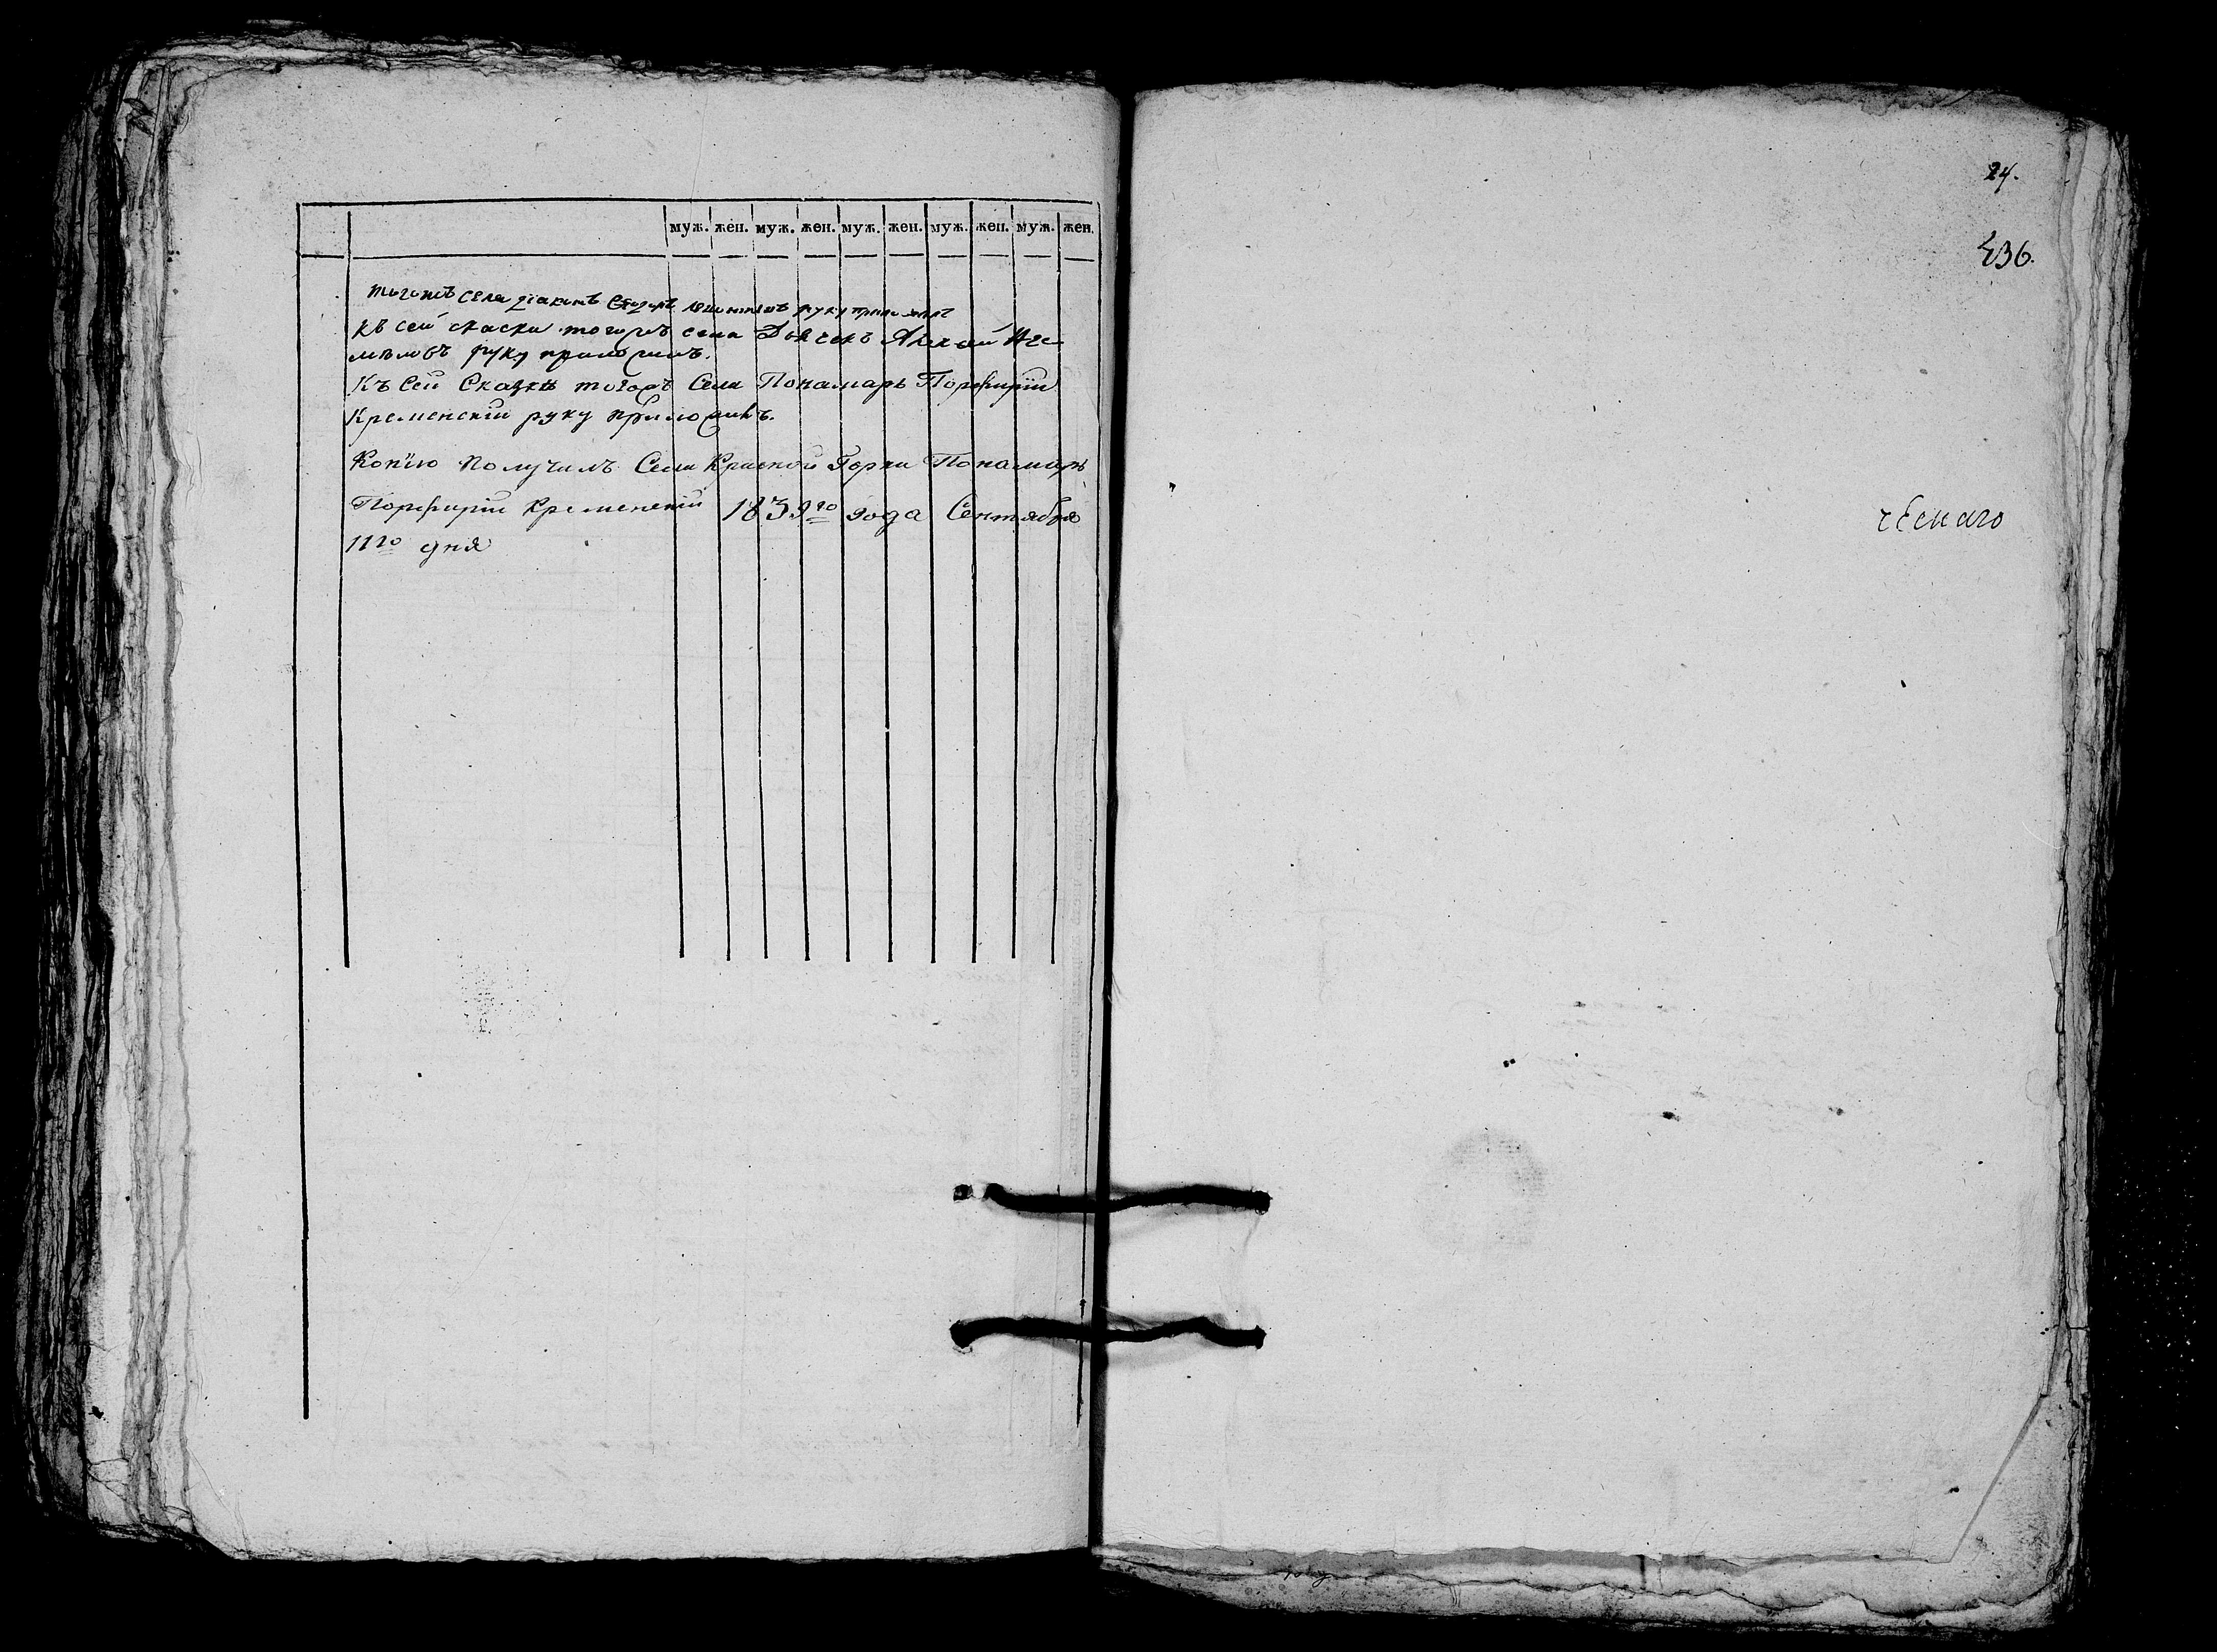 муж. жен. муж. жен. муж. жен. муж. жен. муж. жен.
тогожъ села діаконъ руку приложилъ
къ сей скаски тогожъ села Дьячекъ
руку приложилъ.
Къ Сей Сказкѣ тогожъ Села Понамарь Порфирiй
Кременскiй руку приложилъ.
Копїю получилъ Села Красной Горки Понамарь
Порфирiй Кременскiй 1839го года Сентября
11го дня
24.
436.
ческаго